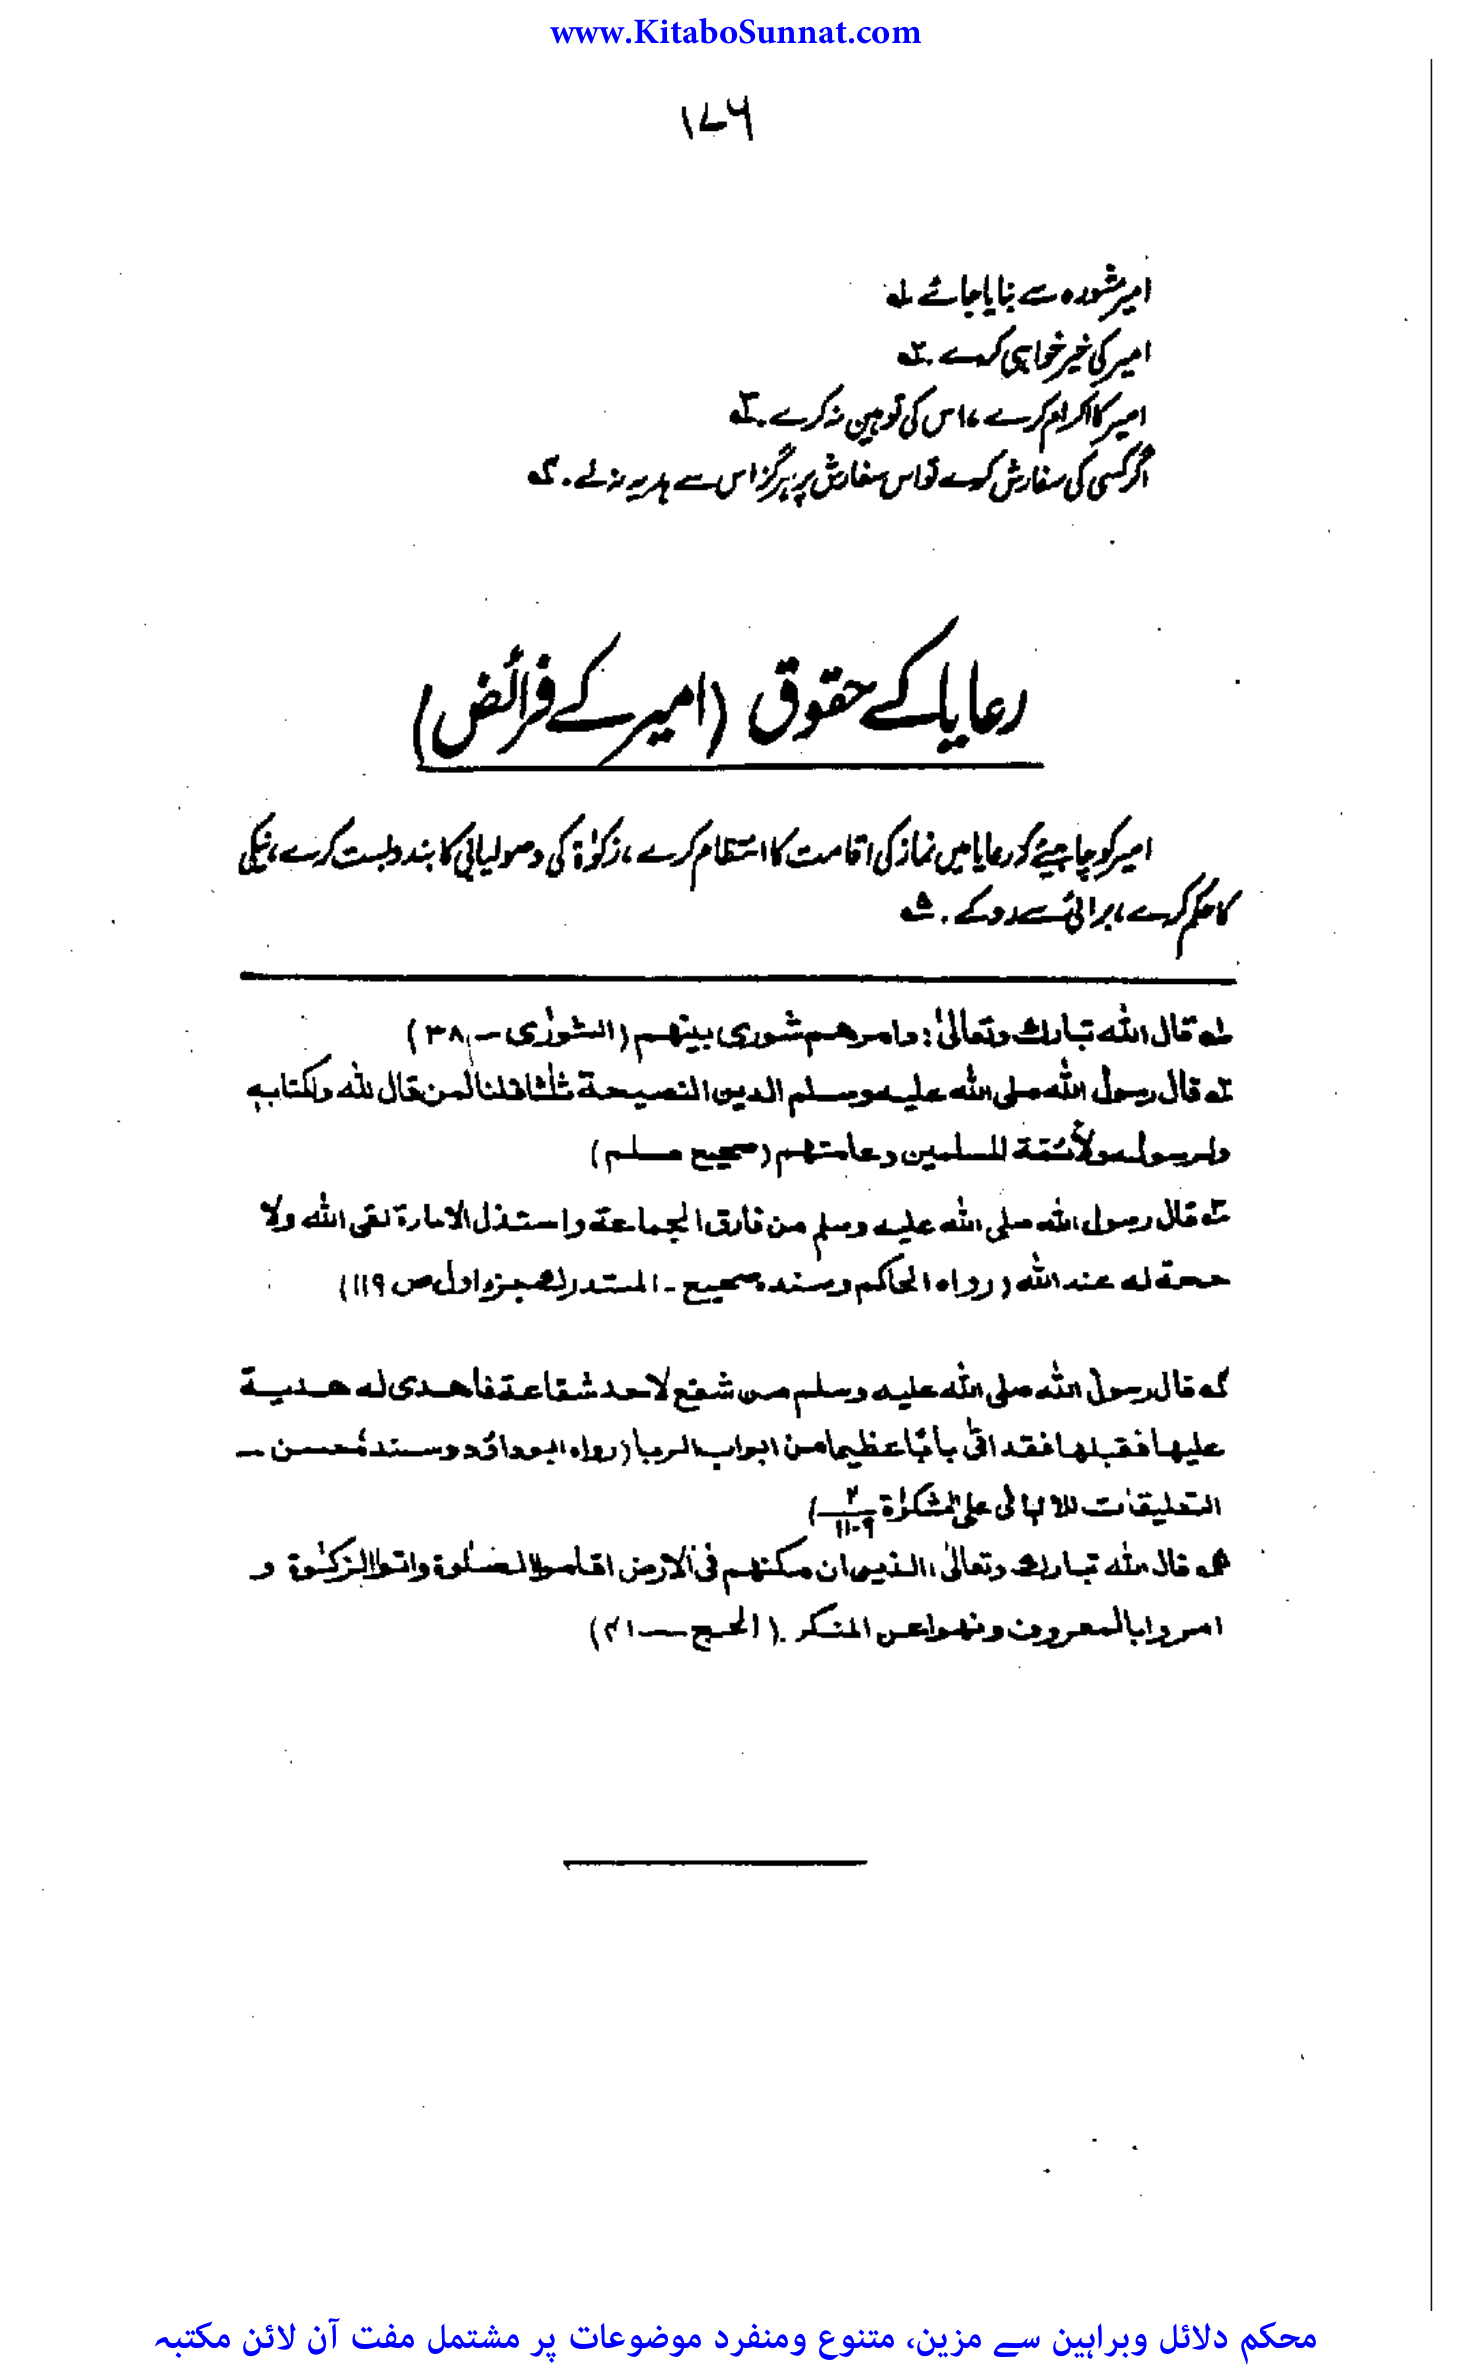 www.KitaboSunnat.com
۱۷۶
امیر مشورہ سے بنایا جائے ۱ے
امیر کی خیر خواہی کرے۔ ۲ے
امیر کا اکرام کرے، اس کی توہین نہ کرے۔ ۳ے
اگر کسی کی سفارش کرے تو اس سفارش پر ہرگز اس سے ہدیہ نہ لے۔ ۴ے
رعایا کے حقوق (امیر کے فرائض)
امیر کو چاہیئے کہ رعایا میں نماز کی اقامت کا انتظام کرے، زکوٰۃ کی وصولیابی کا بندوبست کرے، نیکی
کا حکم کرے، برائی سے روکے۔ ۵ے
۱ے قال اللہ تبارک وتعالیٰ: وامرھم شوری بینھم (الشورٰی – ۳۸)
۲ے قال رسول اللہ صلی اللہ علیہ وسلم الدین النصیحۃ ثلثا قلنا لمن قال للہ ولکتابہ
ولرسولہ ولأئمۃ المسلمین وعامتھم (صحیح مسلم)
۳ے قال رسول اللہ صلی اللہ علیہ وسلم من فارق الجماعۃ واستذل الامارۃ لقی اللہ ولا
حجۃ لہ عند اللہ (رواہ الحاکم وسندہ صحیح ۔ المستدرک جزء اول ص ۱۱۹)
۴ے قال رسول اللہ صلی اللہ علیہ وسلم من شفع لاحد شفاعۃ فاھدی لہ ھدیۃ
علیھا فقبلھا فقد اتیٰ بابًا عظیما من ابواب الربا (رواہ ابوداؤد وسندہٗ حسن –
التعلیقات للالبانی علی المشکوٰۃ ۲/۱۱۰۹)
۵ے قال اللہ تبارک وتعالیٰ، الذین ان مکنھم فی الارض اقاموا الصلٰوۃ واتوا الزکٰوۃ و
امروا بالمعروف ونھوا عن المنکر ۔ (الحج — ۴۱)
محکم دلائل وبراہین سے مزین، متنوع ومنفرد موضوعات پر مشتمل مفت آن لائن مکتبہ